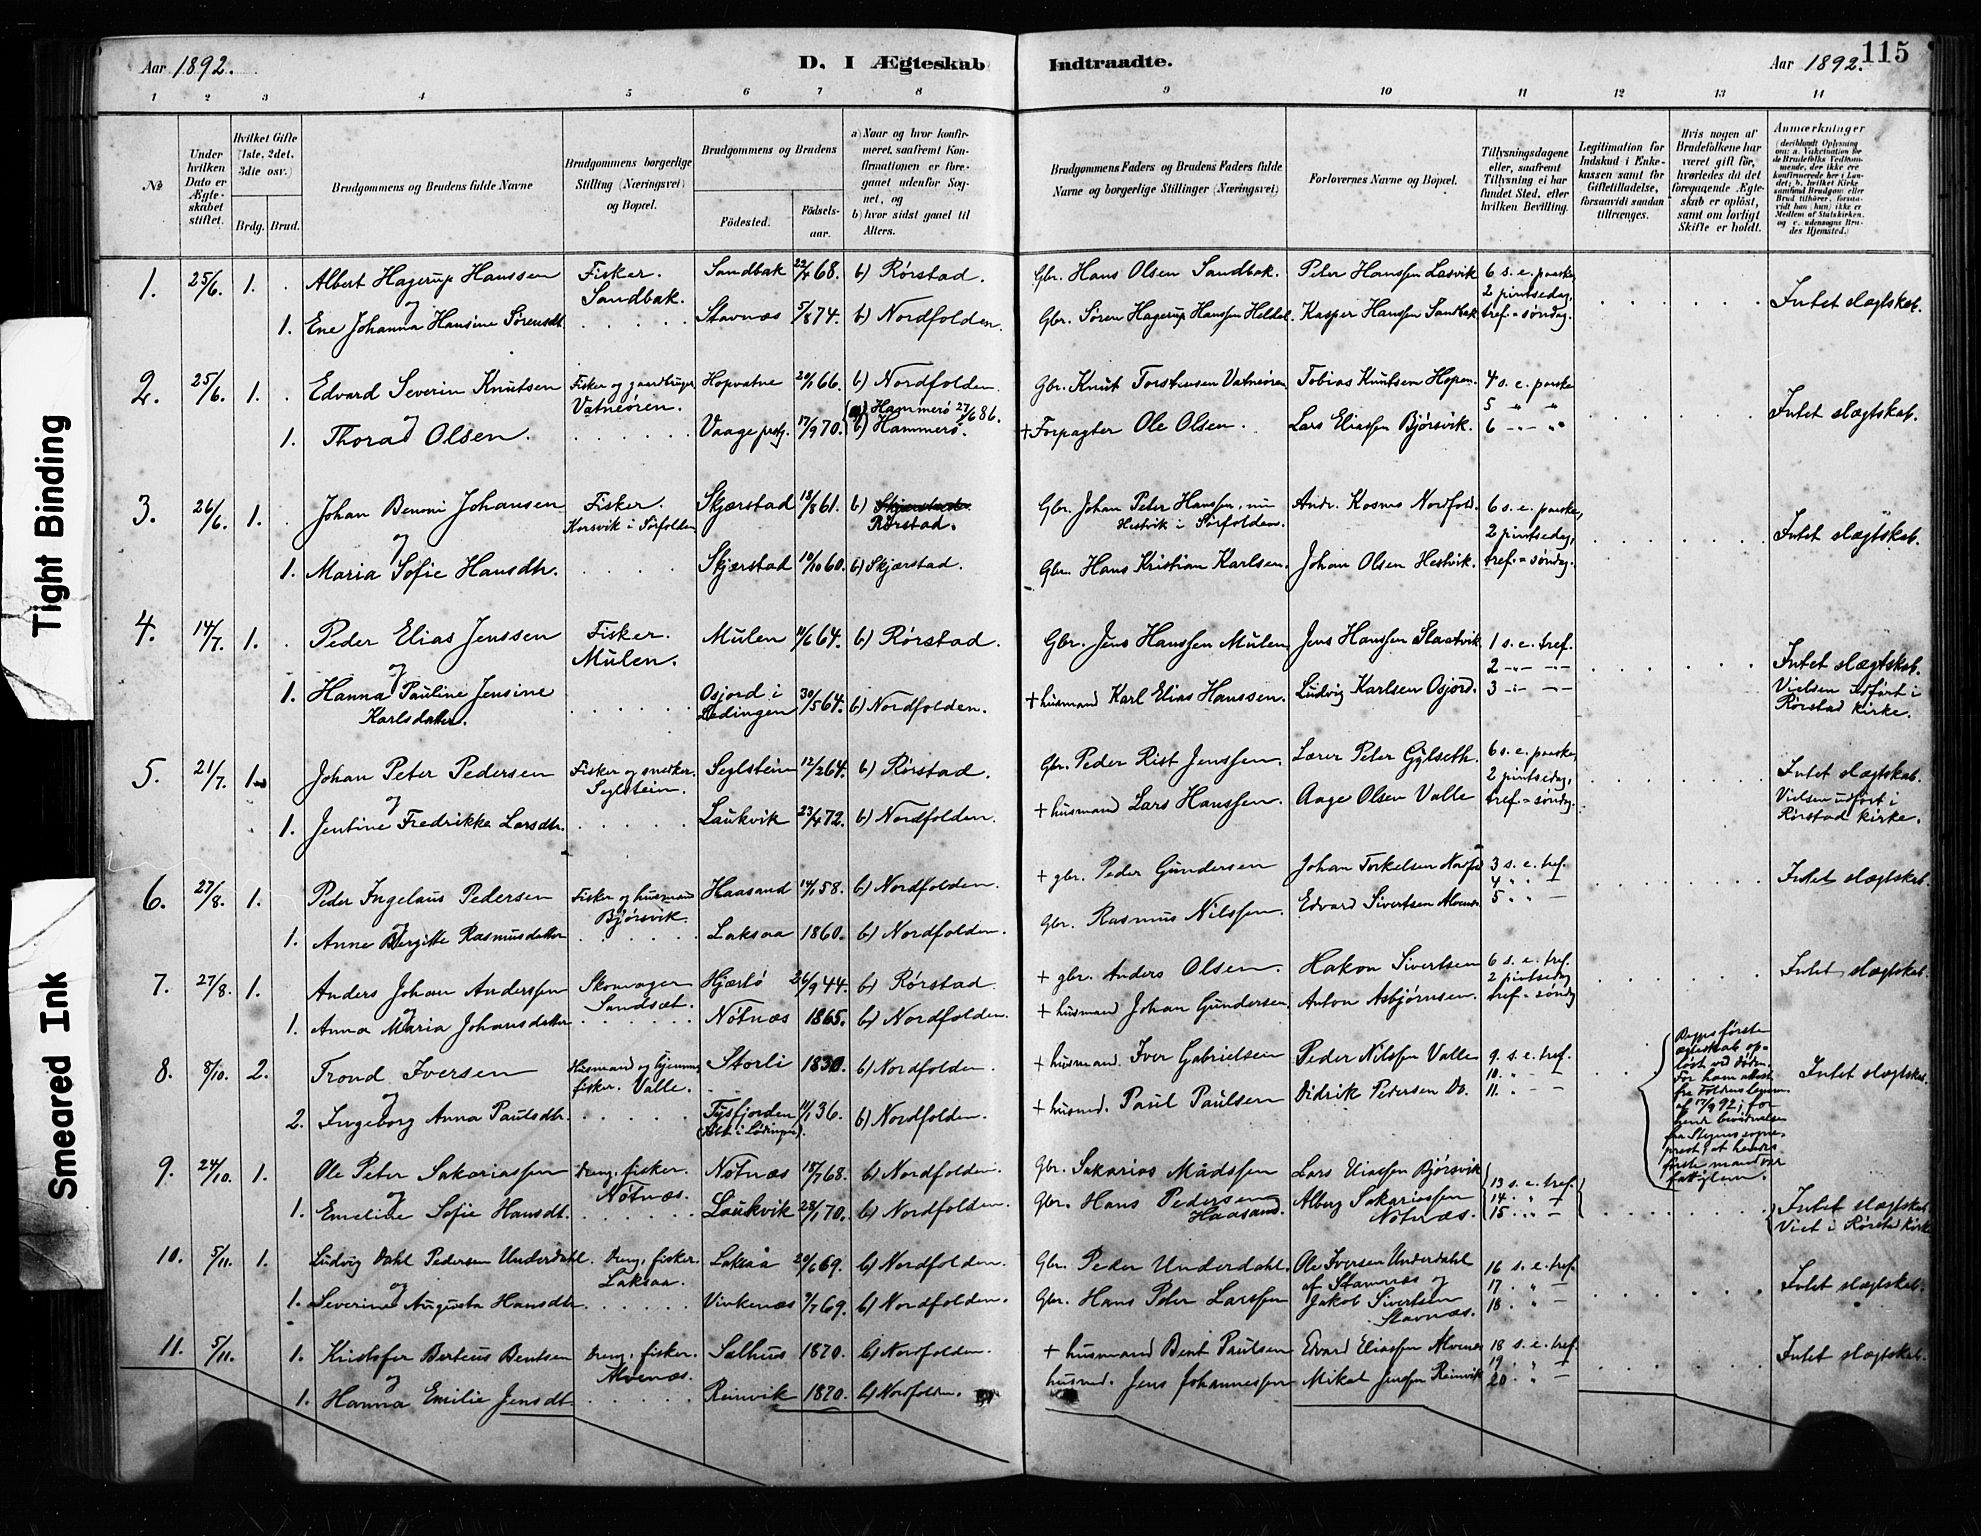 Aar 1892. D. I Ægteskab Indtraadte. Aar 1892. 115
1 2 3 4 5 6 7 8 9 10 11 12 13 14
No
Under hvilken Dato er Ægteskabet stiftet.
Hvilket Gifte (1ste, 2det, 3die osv.)
Brdg. Brud.
Brudgommens og Brudens fulde Navne
Brudgommens borgerlige Stilling (Næringsvei) og Bopæl.
Brudgommens og Brudens
Födested. Födselsaar.
a) Naar og hvor konfirmeret, saafremt Konfirmationen er foregaaet udenfor Sognet, og
b) hvor sidst gaaet til Alters.
Brudgommens Faders og Brudens Faders fulde Navne og borgerlige Stillinger (Næringsvei)
Forlovernes Navne og Bopæl.
Tillysningsdagene eller, saafremt Tillysning ei har fundet Sted, efter hvilken Bevilling.
Legitimation for Indskud i Enkekassen samt for Giftetilladelse, forsaavidt saadan tiltrænges.
Hvis nogen af Brudefolkene har været gift før, hvorledes da det foregaaende Ægteskab er oplöst, samt om lovligt Skifte er holdt.
Anmærkninger
1. 25/6. 1. Albert Hagerup Hanssen Fisker. Sandbak 22/4 68. b) Rørstad. Gbr. Hans Olsen Sandbak. Peter Hanssen Løsvik 6 s. e. paaske,
og Sandbak. 2 pintsedag, Intet slægtskab.
1. Ene Johanna Hansine Sørensdt. Stavnæs 5/8 74. b) Nordfolden. Gbr. Søren Hagerup Hanssen Heldal. Kasper Hanssen Sandbak tref.=søndag.
2. 25/6. 1. Edvard Severin Knutsen Fisker og gaardbruger Hopvatne 20/1 66. b) Nordfolden. Gbr. Knut Torstensen Vatneøren. Tobias Knutsen Hopen. 4 s. e. paaske
og Vatneøren. a) Hammerö 27/6 86. 5 " " Intet slægtskab.
1. Thora Olsen. Vaage prstg. 17/9 70. b) Hammerö. + Forpagter Ole Olsen. Lars Eliassen Bjørsvik. 6 " "
3. 26/6. 1. Johan Benoni Johansen Fisker. Skjærstad 18/8 61. b) Rørstad. Gbr. Johan Peter Hanssen, nu Andr. Kosmo Nordfold. 6 s. e. paaske,
og Korsvik i Sörfolden Hestvik i Sörfolden. 2 pintsedag, Intet slægtskab.
1. Maria Sofie Hansdtr. Skjærstad 10/10 60. b) Skjærstad. Gbr. Hans Kristian Karlsen. Johan Olsen Hestvik. tref.=søndag.
4. 14/7. 1. Peder Elias Jenssen Fisker. Mulen 11/6 64. b) Rørstad. Gbr. Jens Hanssen Mulen Jens Hanssen Slaatvik 1 s. e. tref.
og Mulen. 2 " " Intet slægtskab.
1. Hanna Pauline Jensine Osjord i 30/5 64. b) Nordfolden. + husmand Karl Elias Hanssen. Ludvig Karlsen Osjord. 3 " " Vielsen udført i
Karlsdatter. Lødingen Rørstad kirke.
5. 21/7. 1. Johan Peter Pedersen Fisker og snedker. Seglstein 12/2 64. b) Rørstad. Gbr. Peder Rist Jenssen. Lærer Peter Gylseth. 6 s. e. paaske,
og Seglstein. 2 pintsedag, Intet slægtskab.
1. Jentine Fredrikke Larsdtr. Laukvik 23/4 72. b) Nordfolden. + husmand Lars Hanssen. Aage Olsen Valle tref.=søndag. Vielsen udført i
Rørstad kirke.
6. 27/8. 1. Peder Ingelaus Pedersen Fisker og husmand Haasand 14/1 58. b) Nordfolden. + gbr. Peder Gundersen Johan Torkelsen Nordfold 3 s. e. tref.
og Bjørsvik 4 " " Intet slægtskab.
1. Anne Bergitte Rasmusdatter Laksaa 1860. b) Nordfolden. Gbr. Rasmus Nilssen. Edvard Sivertsen Alvenæs. 5 " "
7. 27/8. 1. Anders Johan Anderssen Skomager Hjærtö 26/9 44. b) Rørstad. + gbr. Anders Olsen. Hakon Sivertsen 6 s. e. tref.
og Sandsæt. 2 pintsedag Intet slægtskab.
1. Anna Maria Johansdatter Nötnæs 1865. b) Nordfolden. + husmand Johan Gundersen. Anton Asbjørnsen. tref.=søndag
8. 8/10. 2. Trond Iversen Husmand og hjemmefisker. Valle. Storli 1830. b) Nordfolden. + husmand. Iver Gabrielsen Peder Nilssen Valle 9 s. e. tref.
og 10. " " Intet slægtskab.
2. Ingeborg Anna Paulsdtr. Tysfjorden 11/1 36. b) Nordfolden. + husmd. Paul Paulsen Didrik Pedersen Do. 11. " "
Begges første
ægteskab opløst ved døden.
For ham attest
af 17/9 92, for
første mand var
fattiglem.
9. 24/10. 1. Ole Peter Sakariassen Dreng, fisker. Nötnæs 18/7 68. b) Nordfolden. Gbr. Sakarias Madssen Lars Eliassen Bjørsvik 13 s. e. tref.
og Nötnæs. 14 " "
1. Emeline Sofie Hansdt. Laukvik 28/1 70. b) Nordfolden. Gbr. Hans Pedersen Haasand. Alberg Sakariassen Nötnæs. 15 " " Intet slægtskab
Viet i Rørstad kirke
10. 5/11. 1. Ludvig Dahl Pedersen Underdahl. Dreng, fisker. Laksaa 20/6 69. b) Nordfolden. Gbr. Peder Underdahl. Ole Iversen Underdahl 16 s. e. tref.
og Laksaa. af Stamnæs og 17 " " Intet slægtskab.
1. Severine Augusta Hansdtr. Vinkenæs 7/7 69. b) Nordfolden. Gbr. Hans Peter Larssen Jakob Sivertsen Stavnæs. 18 " "
11. 5/11. 1. Kristofer Berteus Bentsen Dreng, fisker. Salhus 1870. b) Nordfolden. + husmand Bent Paulsen Edvard Eliassen Alvenes 18 s. e. tref.
og Alvenæs. 19 " " Intet slægtskab.
1. Hanna Emilie Jensdt. Reinvik 1870. b) Nordfolden. husmd. Jens Johannessen Mikal Jenssen Reinvik 20 " "
Tight Binding
Smeared Ink